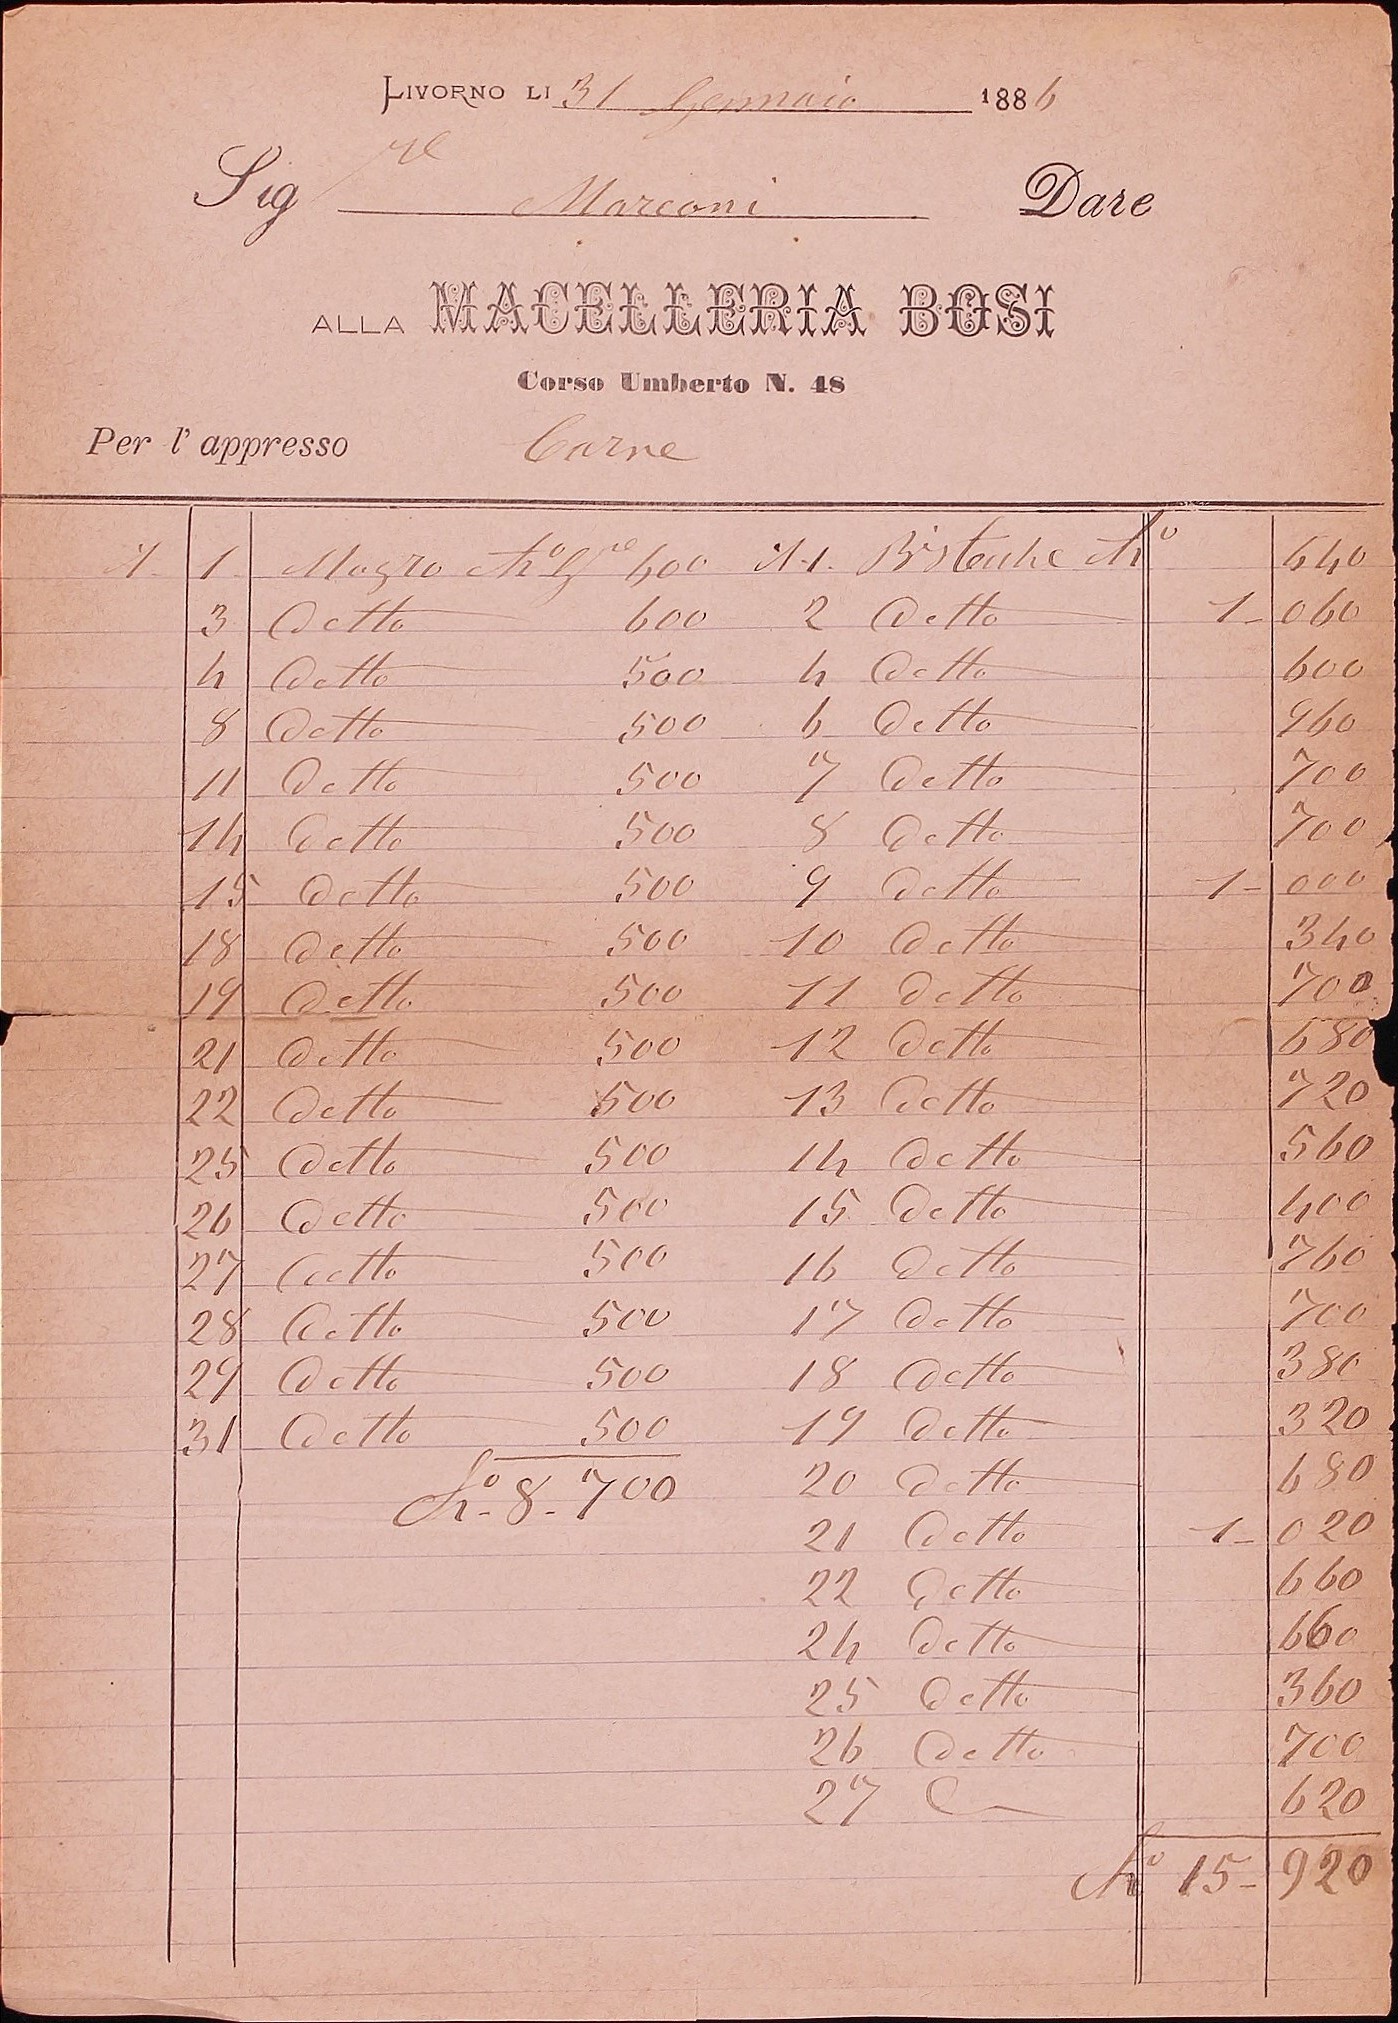 LIVORNO LI 31 Gennaio 1886
Sig re Marconi Dare
ALLA MACELLERIA BOSI
Corso Umberto N. 48
Per l' appresso Carne
1 Magro Ko 600 1 Bistecche Ko 640
3 Detto 600 2 Detto 1- 060
4 Detto 500 4 Detto 600
8 Detto 500 6 Detto 960
11 Detto 500 7 Detto 700
14 Detto 500 8 Detto 700
15 Detto 500 9 Detto 1- 000
18 Detto 500 10 Detto 340
19 Detto 500 11 Detto 700
21 Detto 500 12 Detto 680
22 Detto 500 13 Detto 720
25 Detto 500 14 Detto 560
26 Detto 500 15 Detto 400
27 Detto 500 16 Detto 760
28 Detto 500 17 Detto 700
29 Detto 500 18 Detto 380
31 Detto 500 19 Detto 320
Ko- 8- 700 20 Detto 680
21 Detto 1- 020
22 Detto 660
24 Detto 660
25 Detto 360
26 Detto 700
27 620
Ko 15- 920